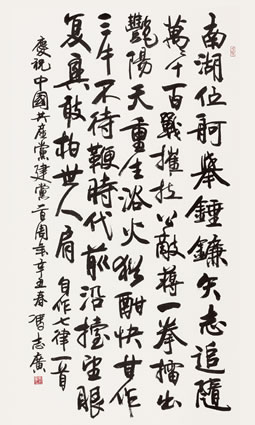 南湖位舸舉錘鐮矢志追隨
萬千百戰摧拉公敵一拳擂出
艷陽天重生浴火猶酣快甘作
三牛不待鞭時代前沿擡望眼
复興敢拍世人肩 自作七律一首
慶祝中國共產黨建黨一百周年辛丑春 馮志廣